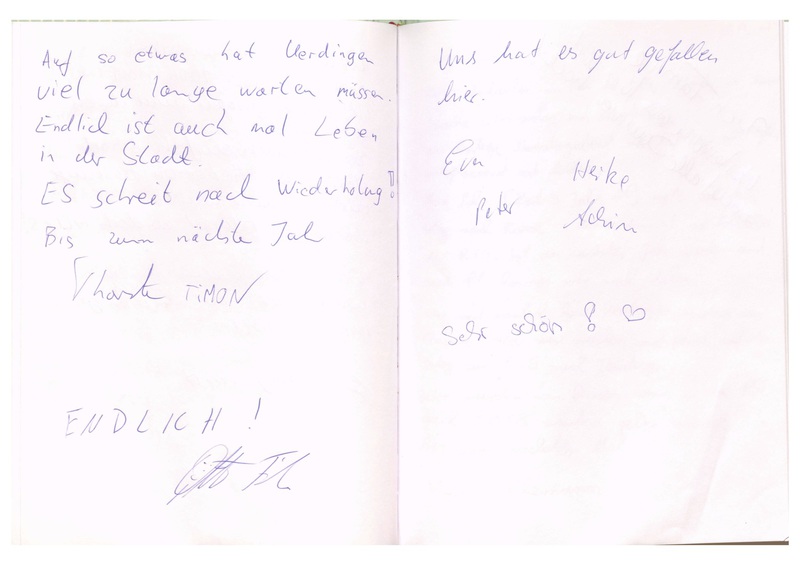 Auf so etwas hat Uerdingen
viel zu lange warten müssen.
Endlich ist auch mal Leben
in der Stadt.
ES schreit nach Wiederholung!
Bis zum nächste Jah
Thorste TIMON
ENDLICH!
Uns hat es gut gefallen
hier.
Eva Heike
Peter Achim
Sehr schön! ♡